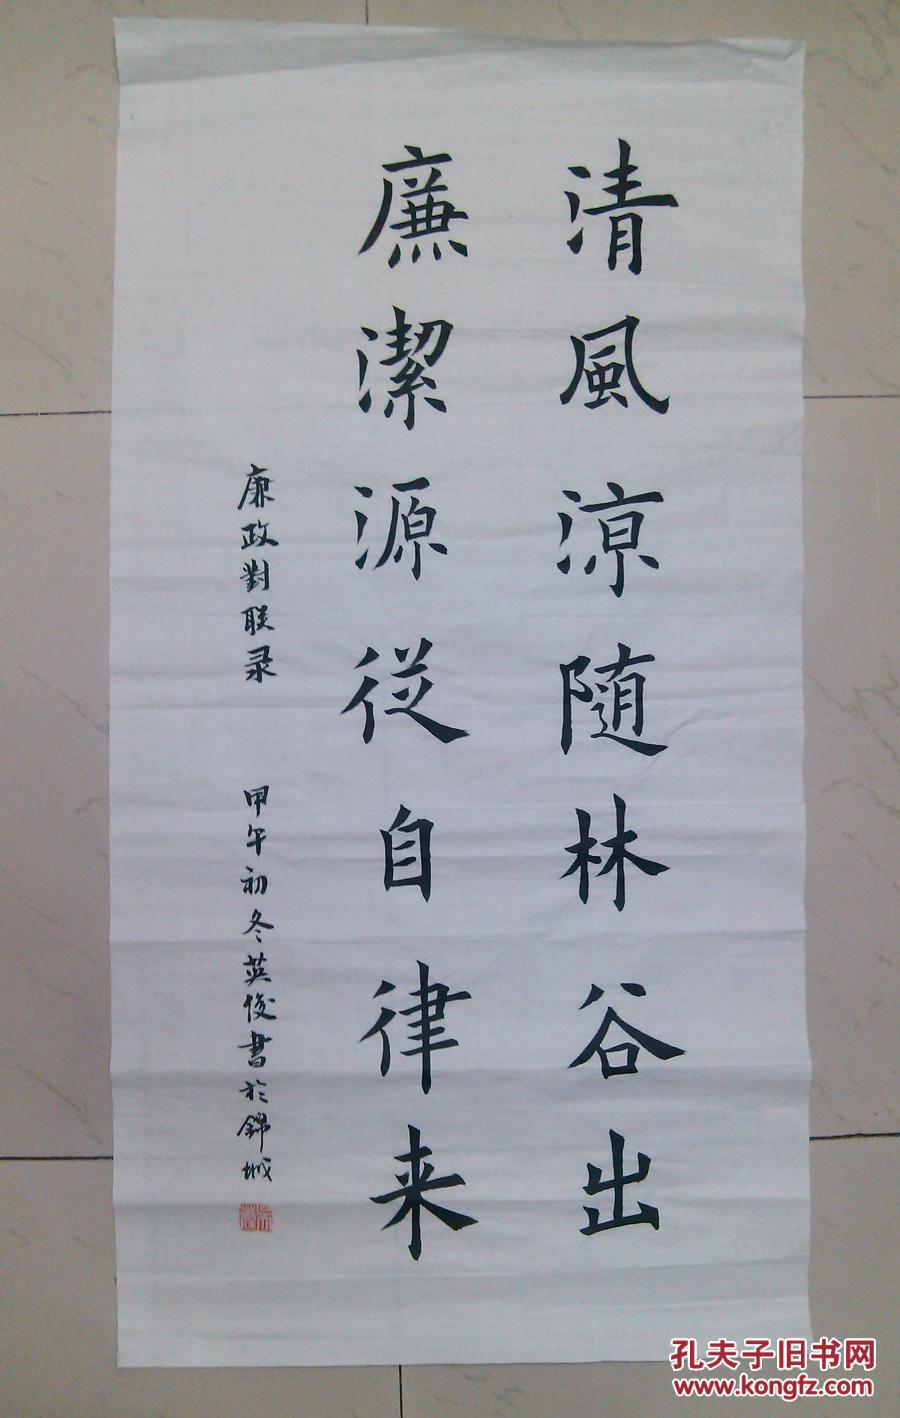 清風涼随林谷出
廉潔源従自律来
廉政對联录
甲午初冬英俊書於錦城
孔夫子旧书网
www.kongfz.com